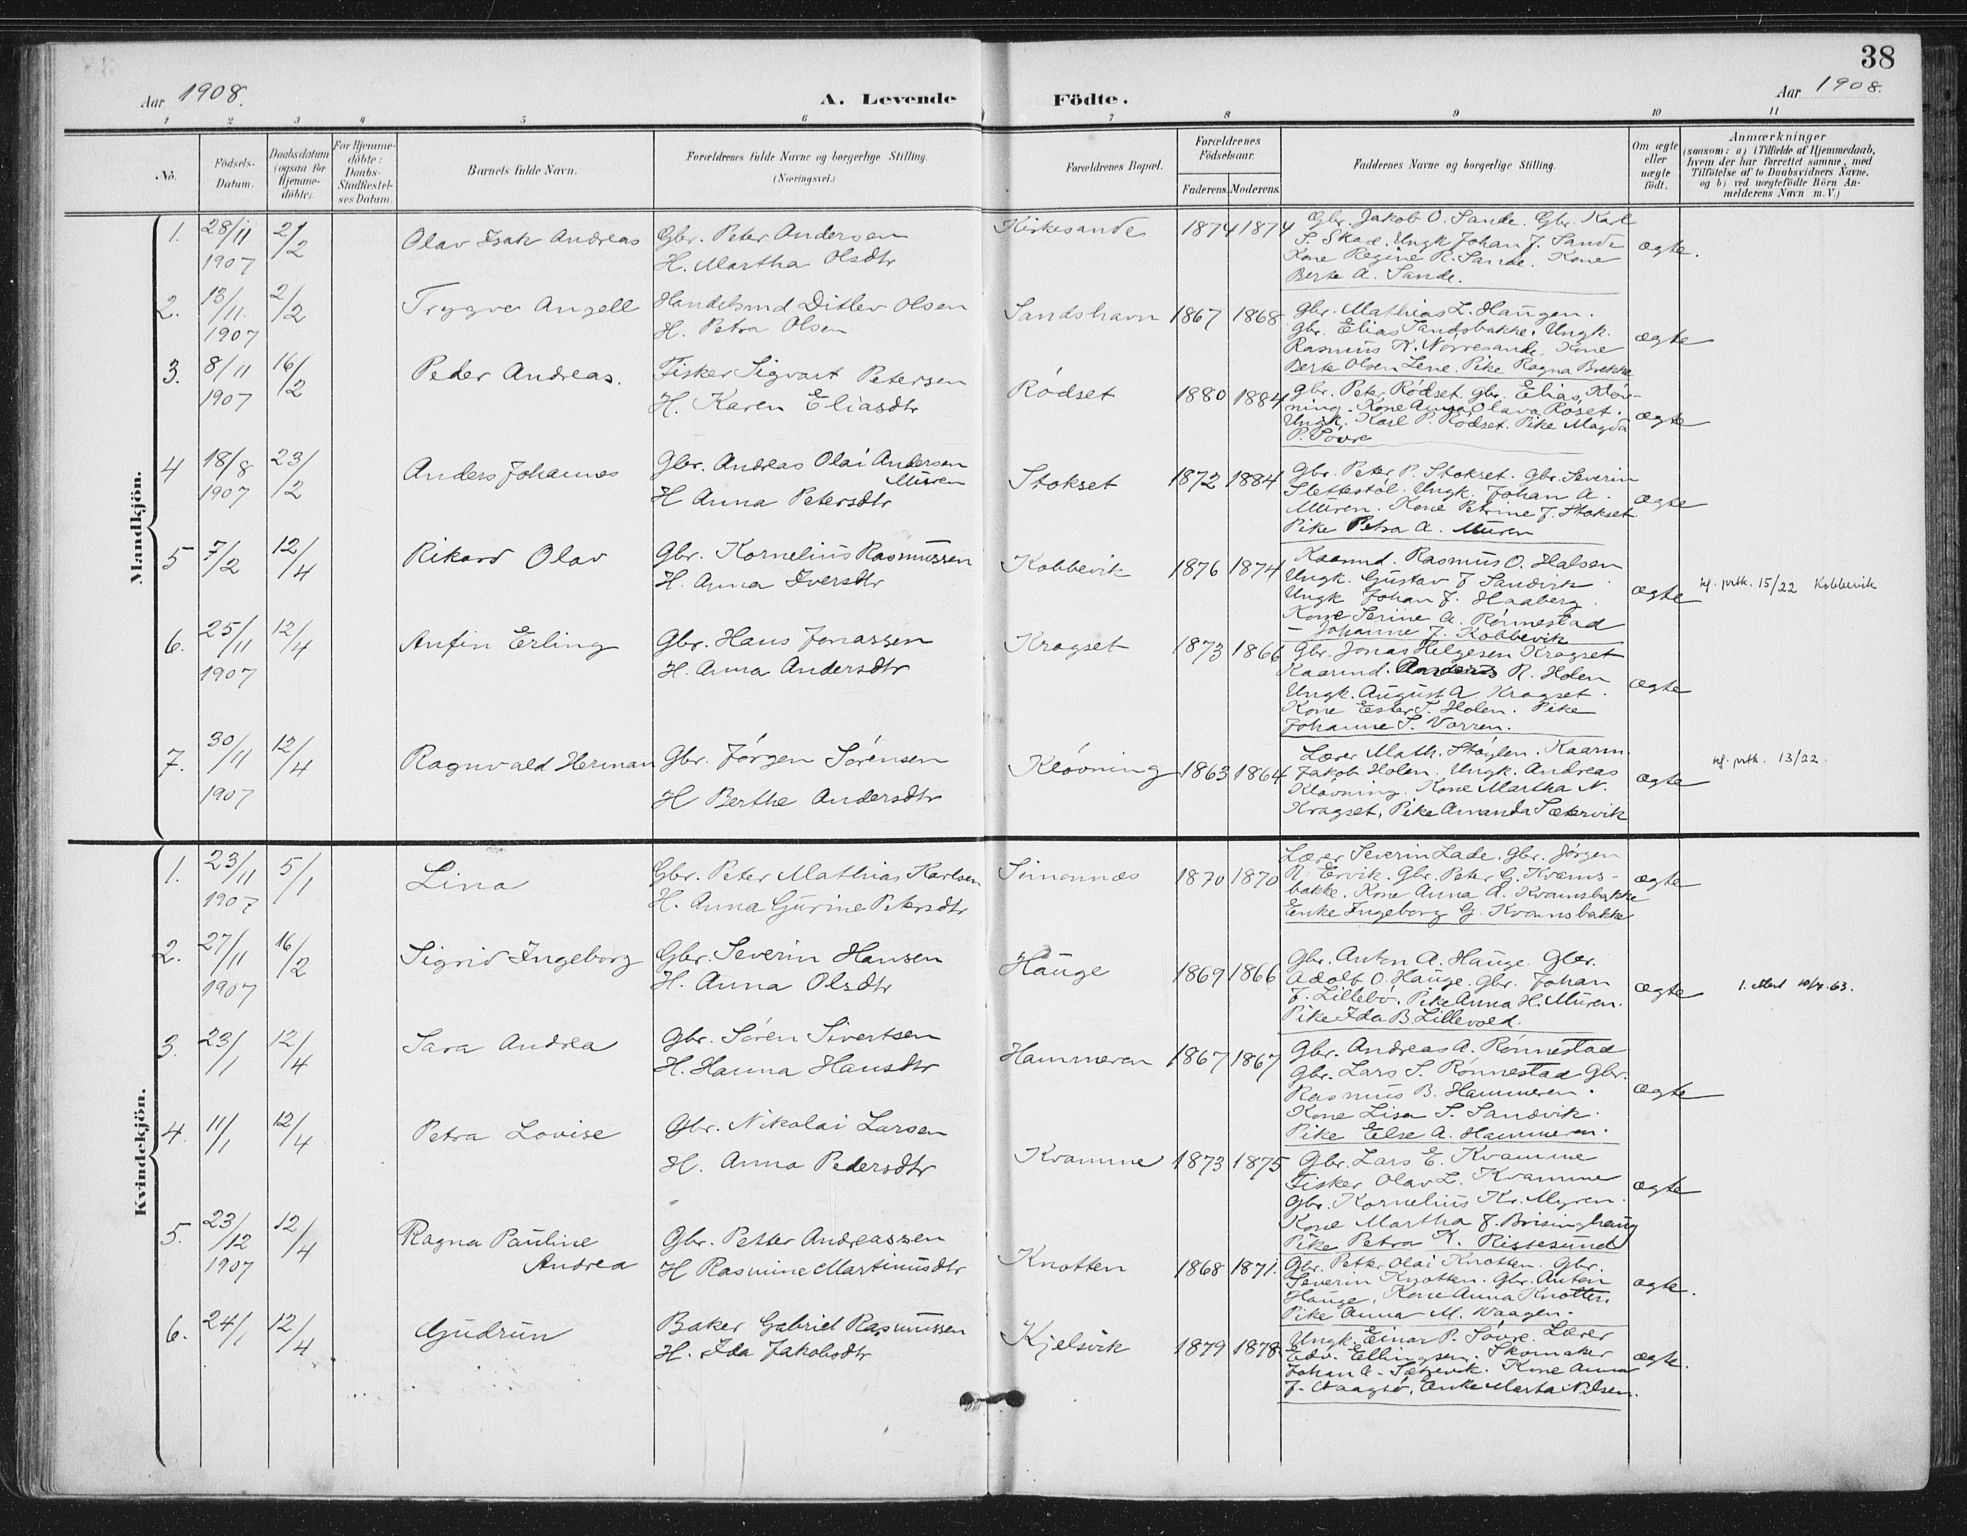 38
Aar 1908.
A. Levende Födte.
Aar 1908.
1 2 3 4 5 6 7 8 9 10 11
No.
Födsels-Datum.
Daabsdatum (ogsaa for Hjemme-döbte).
For Hjemme-döbte: Daabs-Stadfæstel-ses Datum.
Barnets fulde Navn.
Forældrenes fulde Navne og borgerlige Stilling.
(Næringsvei.)
Forældrenes Bopæl.
Forældrenes Födselsaar.
Faderens. Moderens.
Faddernes Navne og borgerlige Stilling.
Om ægte eller uægte födt.
Anmærkninger
(saasom: a) i Tilfælde af Hjemmedaab,
hvem der har forrettet samme, med
Tilföielse af to Daabsvidners Navne,
og b) ved uægtefödte Börn An-
melderens Navn m. V.)
Mandkjön.
1. 28/11 1907 2/2 Olav Isak Andreas
Gbr. Peter Andersen
H. Martha Olsdtr
Kirkesande 1874 1874
Gbr. Jakob O. Sande. Gbr. Karl
S. Skare. Ungk Johan J. Sande
Kone Regine R. Sande. Kone
Berte A. Sande.
ægte.
2. 13/11. 1907 2/2 Trygve Angell
Handelsmd Ditlev Olsen
H. Petra Olsen
Sandshavn 1867 1868
Gbr. Mathias L. Haugen.
Gbr. Elias Sandsbakke. Ungk.
Rasmus K. Nörresande. Kone
Berte Olsen Lene. Pike Ragna Brekke
ægte
3. 8/11 1907 16/2 Peder Andreas.
Fisker Sigvart Petersen
H. Karen Eliasdtr
Rødset 1880 1884
Gbr. Peter Rødset. Gbr. Elias Kløv-
ning. Kone Anna Olava Røset.
Ungk. Karl P. Rødset. Pike Magda
P. Søvre
ægte
4 18/8 1907 23/2 Anders Johannes
Gbr. Andreas Olai Andersen
Muren
H Anna Petersdtr
Stokset 1872 1884
Gbr. Peter P. Stokset. Gbr. Severin
Slettestøl. Ungk. Johan A.
Muren. Kone Petrine J. Stokset
Pike Petra A. Muren
ægte
5 7/2 12/4 Rikard Olav
Gbr. Kornelius Rasmussen
H. Anna Iversdtr
Kobbevik 1876 1874
Kaarmd. Rasmus O. Halsen
Ungk. Gustav J. Sandvik
Ungk Johan J. Haaberg.
Kone Serine A. Rønnestad
- Johanne J. Kobbevik
ægte
kf. prtk. 15/22 Kobbevik
6. 25/11 1907 12/4 Anfin Erling
Gbr. Hans Jonassen
H. Anna Andersdtr
Kragset 1873 1866
Gbr. Jonas Helgesen Kragset
Kaarmd. Anders R. Holen
Ungk. August A. Kragset.
Kone Ester S. Holen. Pike
Johanne S. Vorren.
ægte
7. 30/11 1907 12/4 Ragnvald Herman
Gbr. Jørgen Sørensen
H Berthe Andersdtr
Kløvning 1863 1864
Lærer Math. Støylen. Kaarm.
Jakob Holen. Ungk. Andreas
Kløvning. Kone Martha N.
Kragset, Pike Amanda Sætervik
ægte
kf. prtk. 13/22.
Kvindekjön.
1. 23/11 1907 5/1 Lina
Gbr. Peter Mathias Karlsen
H. Anna Gurine Petersdtr
Simonnæs 1870 1870
Lærer Severin Lade. Gbr. Jørgen
R. Ervik. Gbr. Peter G. Kvams-
bakke. Kone Anna A. Kvamsbakke
Enke Ingeborg G. Kvamsbakke
ægte
2. 27/11 1907 16/2 Sigrid Ingeborg
Gbr. Severin Hansen
H. Anna Olsdtr
Hauge 1869 1866
Gbr. Anton A. Hauge. Gbr.
Adolb O. Hauge. Gbr. Johan
J. Lillebø. Pike Anna H. Muren.
Pike Ida B. Lillevold.
ægte
3. 23/1 12/4 Sara Andrea
Gbr. Søren Sivertsen
H. Hanna Hansdtr
Hammeren 1867 1867
Gbr. Andreas A. Rønnestad
Gbr. Lars S. Rønnestad Gbr.
Rasmus B. Hammeren.
Kone Lisa S. Sandvik.
Pike Else A. Hammeren.
ægte
4. 11/1 12/4 Petra Lovise
Gbr. Nikolai Larsen
H. Anna Pedersdtr
Kvamme 1873 1875
Gbr. Lars E. Kvamme
Fisker Olav L. Kvamme
Gbr. Kornelius Kr. Myren.
Kone Martha J. Brisinghaug
Pike Petra K. Ristesund
ægte
5. 23/12 1907 12/4 Ragna Pauline
Andrea
Gbr. Petter Andreassen
H Rasmine Martinusdtr
Knotten 1868 1871.
Gbr. Peter Olai Knotten. Gbr.
Severin Knotten. Gbr. Anton
Hauge, Kone Anna Knotten,
Pike Anna M. Vaagen.
ægte.
6. 24/1 12/4 Gudrun
Baker Gabriel Rasmussen
H. Ida Jakobsdtr
Kjelsvik 1879 1878.
Ungk. Einar P. Søvre. Lærer
Edv. Ellingsen. Skomaker
Johan A. Sætrevik. Kone Anna
J. Vaagsø, Enke Marta Nilsen.
ægte.